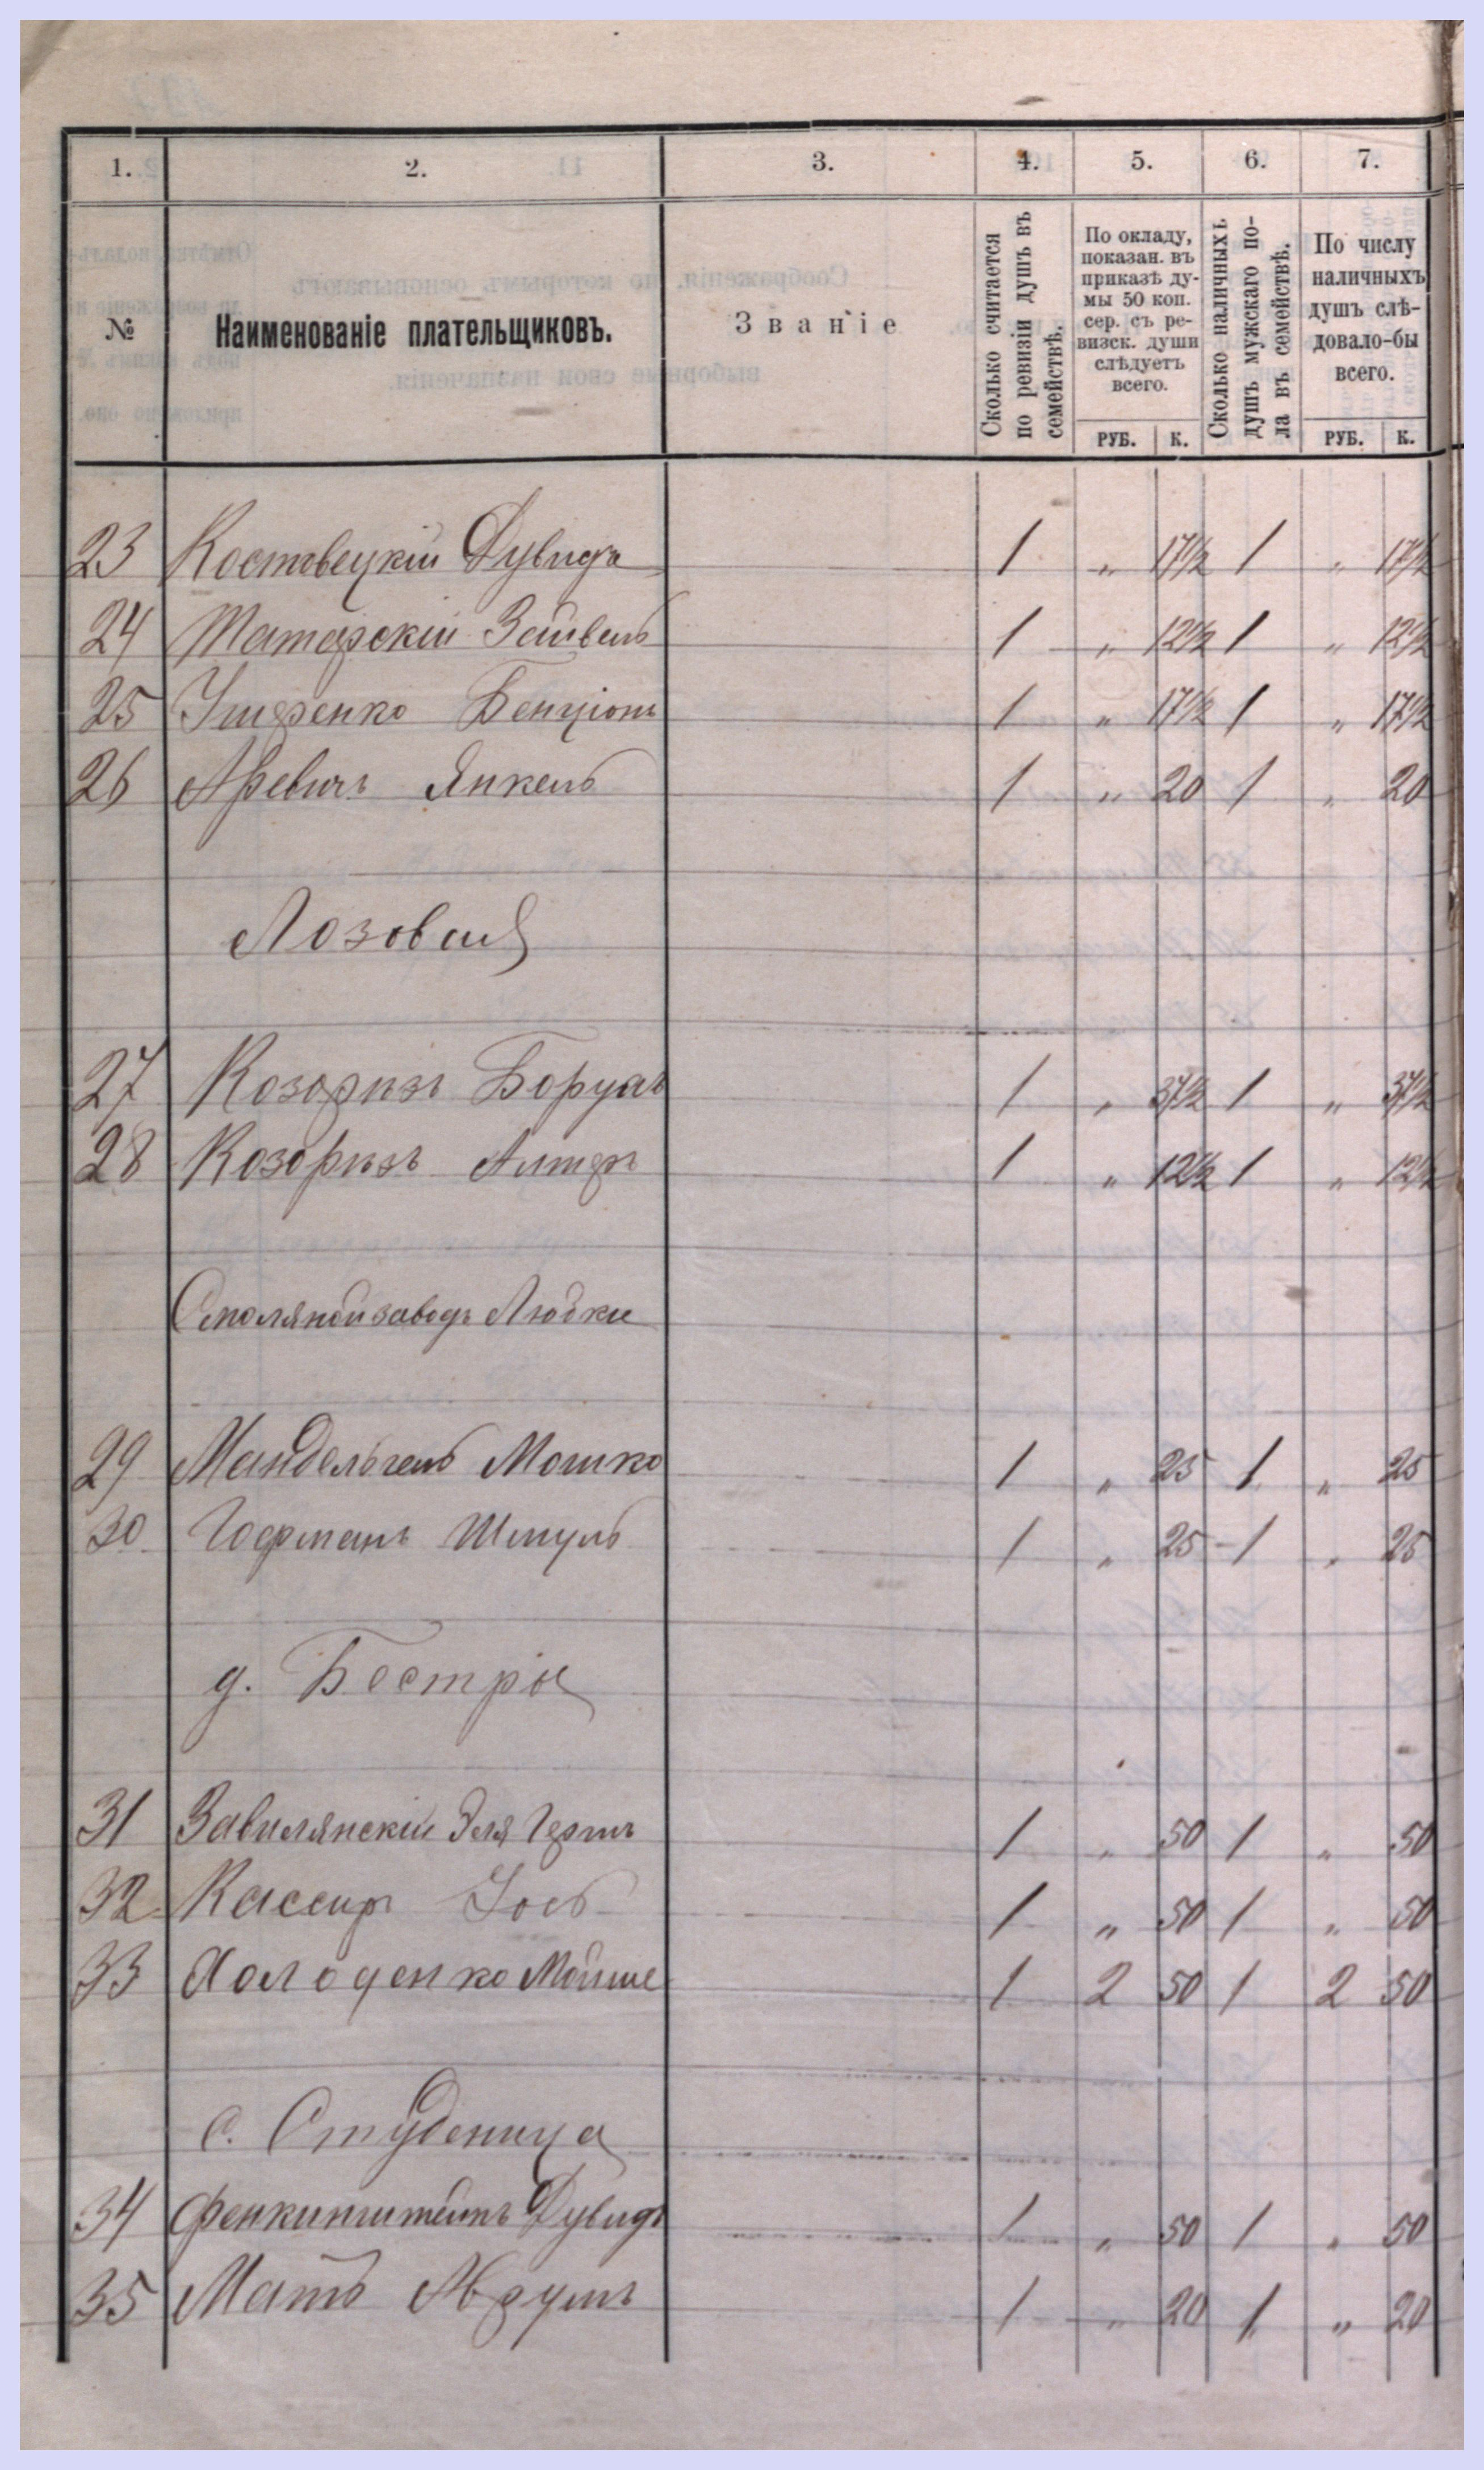 1. 2. 3. 4. 5. 6. 7.
№ Наименованіе плательщиковъ. Званіе
Сколько считается по ревизіи душъ въ семействѣ.
По окладу, показан. въ приказѣ думы 50 коп. сер. съ ревизск. души слѣдуетъ всего.
РУБ. К.
Сколько наличныхъ душъ мужскаго пола въ семействѣ.
По числу наличныхъ душъ слѣдовало-бы всего.
РУБ. К.
23 Костовецкій Дувидъ 1 „ 17½ 1 „ 17½
24 Татарскій Зейвель 1 „ 12½ 1 „ 12½
25 Ищенко Бенціонъ 1 „ 17½ 1 „ 17½
26 Аревичъ Янкель 1 „ 20 1 „ 20
Лозовая
27 Козоризъ Борухъ 1 „ 37½ 1 „ 37½
28 Козоризъ Алтеръ 1 „ 12½ 1 „ 12½
Смоляной заводъ Любки
29 Мошко 1 „ 25 1 „ 25
30 Гофманъ Шмуль 1 „ 25 1 „ 25
д. Бестры
31 Завилянскій Эля Гершъ 1 „ 50 1 „ 50
32 Кассиръ Іось 1 „ 50 1 „ 50
33 Холоденко Мойше 1 2 50 1 2 50
с. Студеница
34 Фенкинштейнъ Дувидъ 1 „ 50 1 „ 50
35 Мать Аврумъ 1 „ 20 1 „ 20